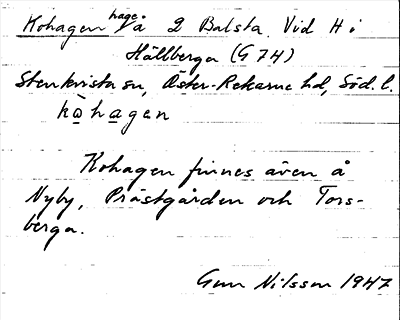 Kohagen hage å 2 Balsta. Vid H i
Hällberga (G 74)
Stenkvista sn, Öster-Rekarne hd, Söd. l.
kò̱ha̱gen
Kohagen finnes även å
Nyby, Prästgården och Tors-
berga.
Gun Nilsson 1947